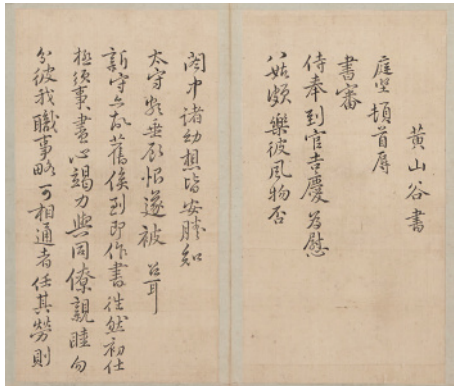 黄山谷書
庭堅頓首辱
書審
侍奉到官吉慶為慰
八姑頗樂彼風物否
閤中諸幼想皆安勝知
太守垂顧恨遂被召耳
新守亦故舊俟到即作書徃然初仕
極須事盡心竭力與同僚親睦勿
分彼我職事略可相通者任其勞則